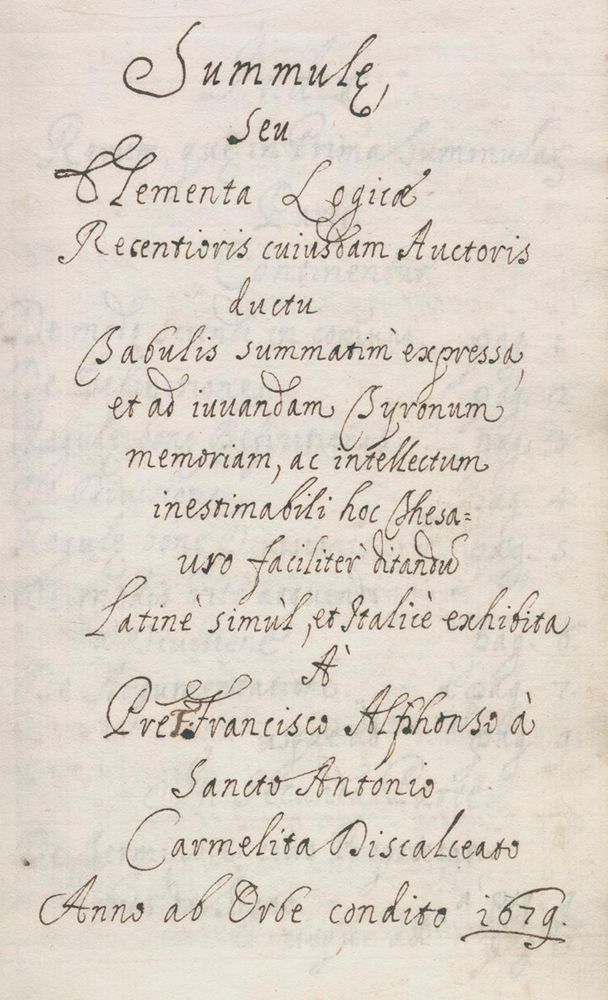 Summulę,
seu
Elementa Logicæ
Recentioris cuiusdam Auctoris
ductu
Tabulis summatim̀ expressa,
et ad iuvandam Tyronum
memoriam, ac intellectum
inestimabili hoc Thesa=
uro faciliter̀ ditandū
Latinè simùl, et Italicè exhibita
À
Francisco Alphonso à
Sancto Antonio
Carmelita Discalceato
Anno ab Orbe condito 1679.